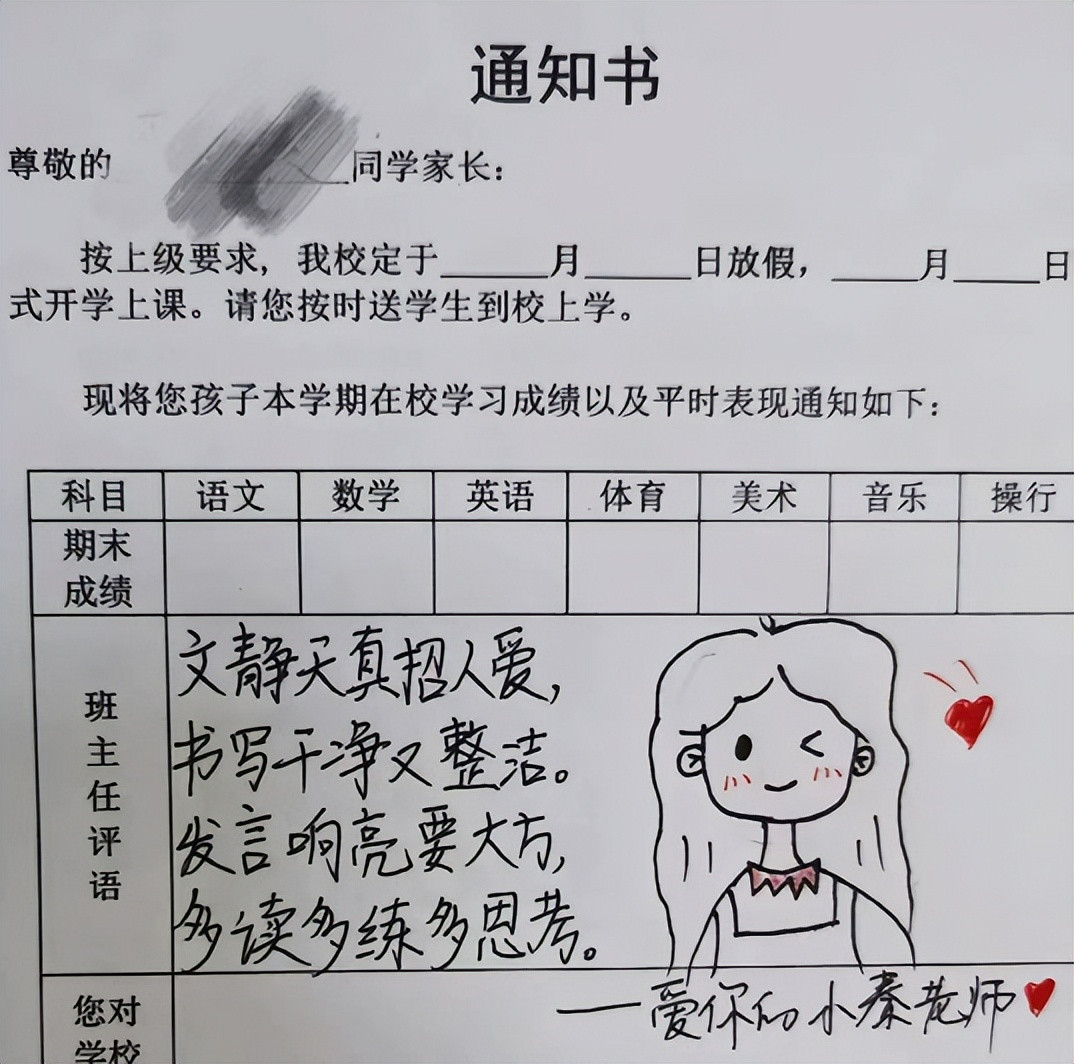 通知书
尊敬的______同学家长：
按上级要求，我校定于______月______日放假，_____月_____日
式开学上课。请您按时送学生到校上学。
现将您孩子本学期在校学习成绩以及平时表现通知如下：
科目 语文 数学 英语 体育 美术 音乐 操行
期末
成绩
班主任评语
文静天真招人爱，
书写干净又整洁。
发言响亮要大方，
多读多练多思考。
——爱你的小秦老师
您对
学校